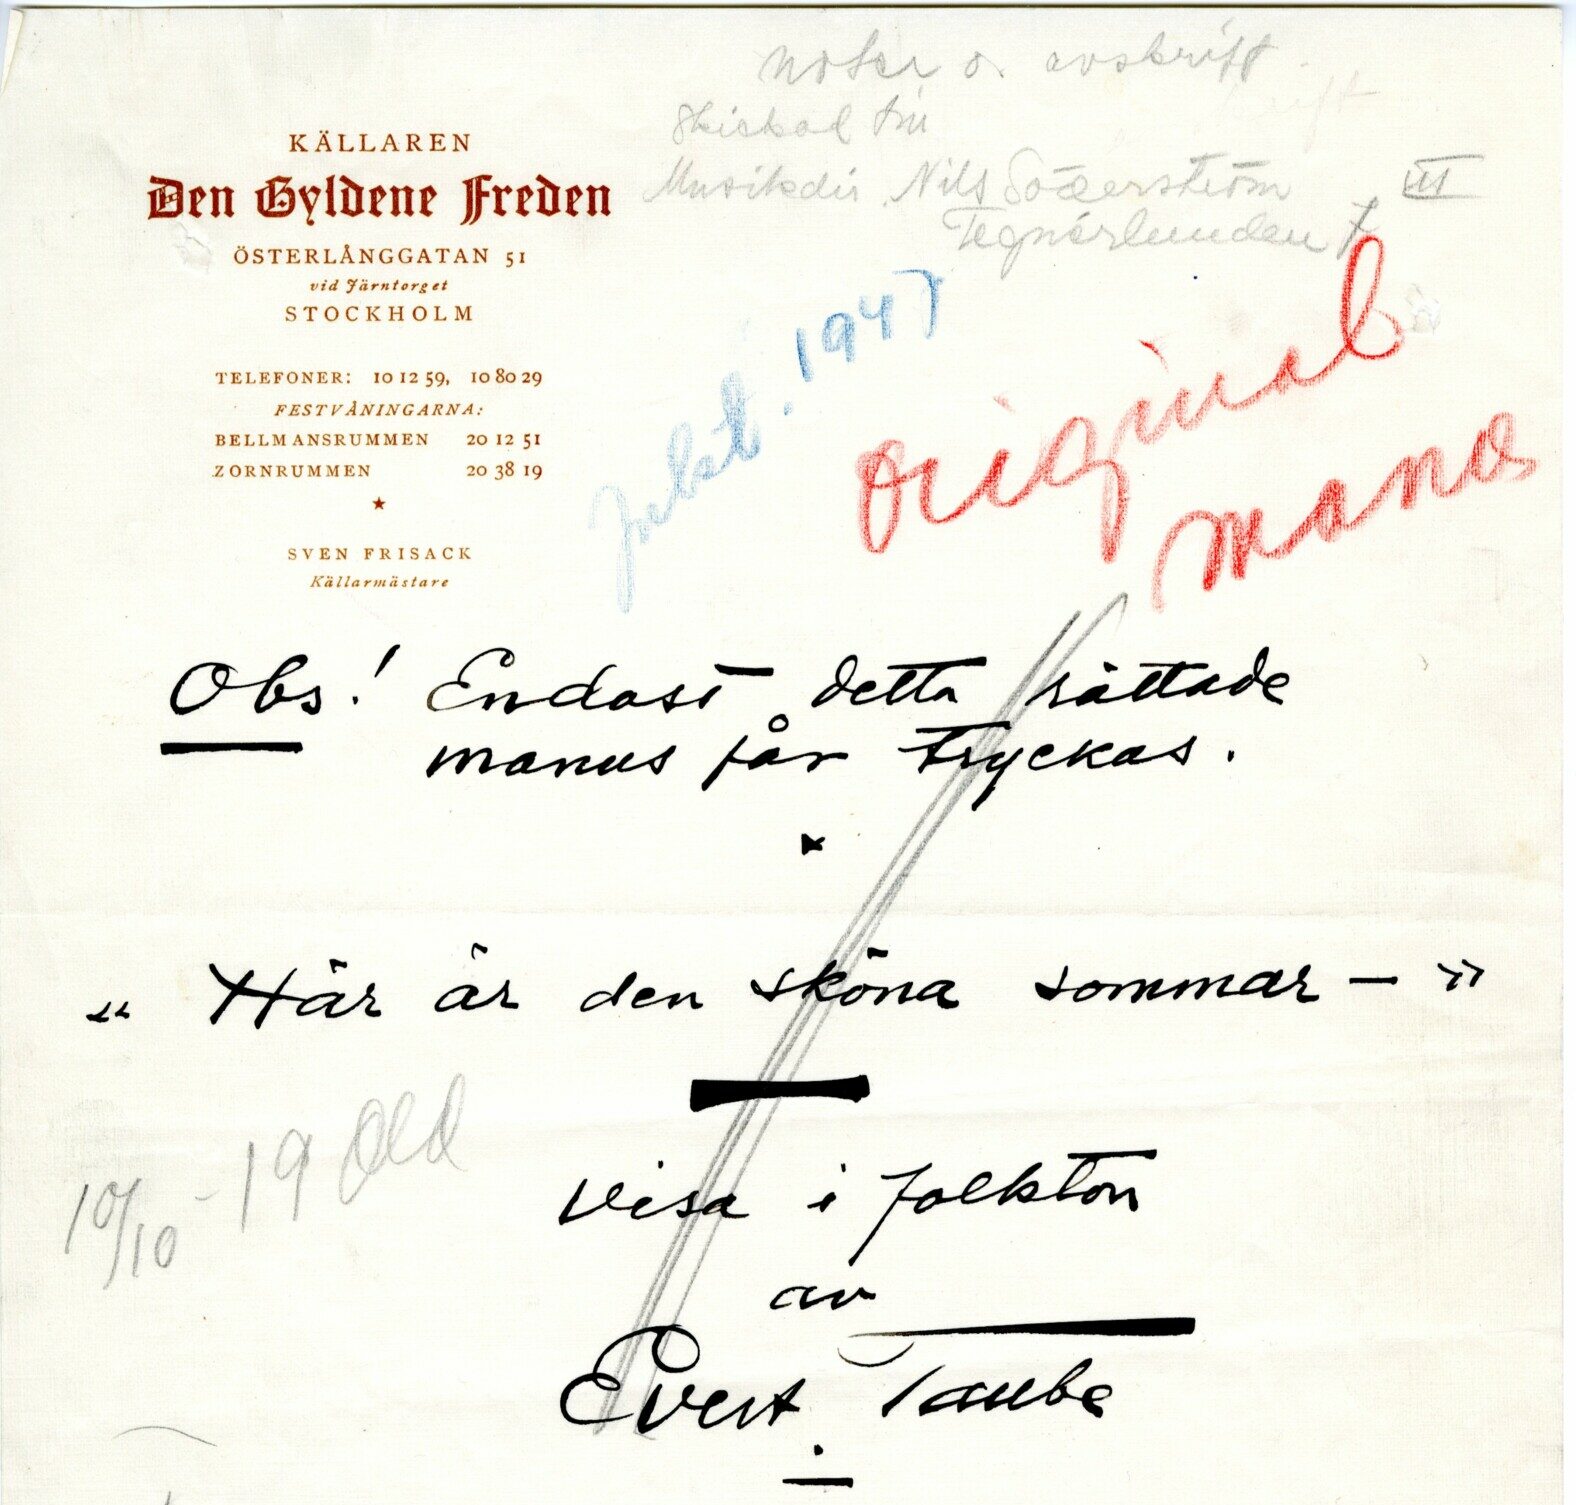 noter o. avskrift
Skickad till
Musikdir. Nils Söderström
Tegnérlunden 7 III
KÄLLAREN
Den Gyldene Freden
ÖSTERLÅNGGATAN 51
vid Järntorget
STOCKHOLM
TELEFONER: 10 12 59, 10 80 29
FESTVÅNINGARNA:
BELLMANSRUMMEN 20 12 51
ZORNRUMMEN 20 38 19
SVEN FRISACK
Källarmästare
1947
Original
manus
Obs! Endast detta rättade
manus får tryckas.
"Här är den sköna sommar – "
10/10 - 19
Visa i folkton
av
Evert Taube